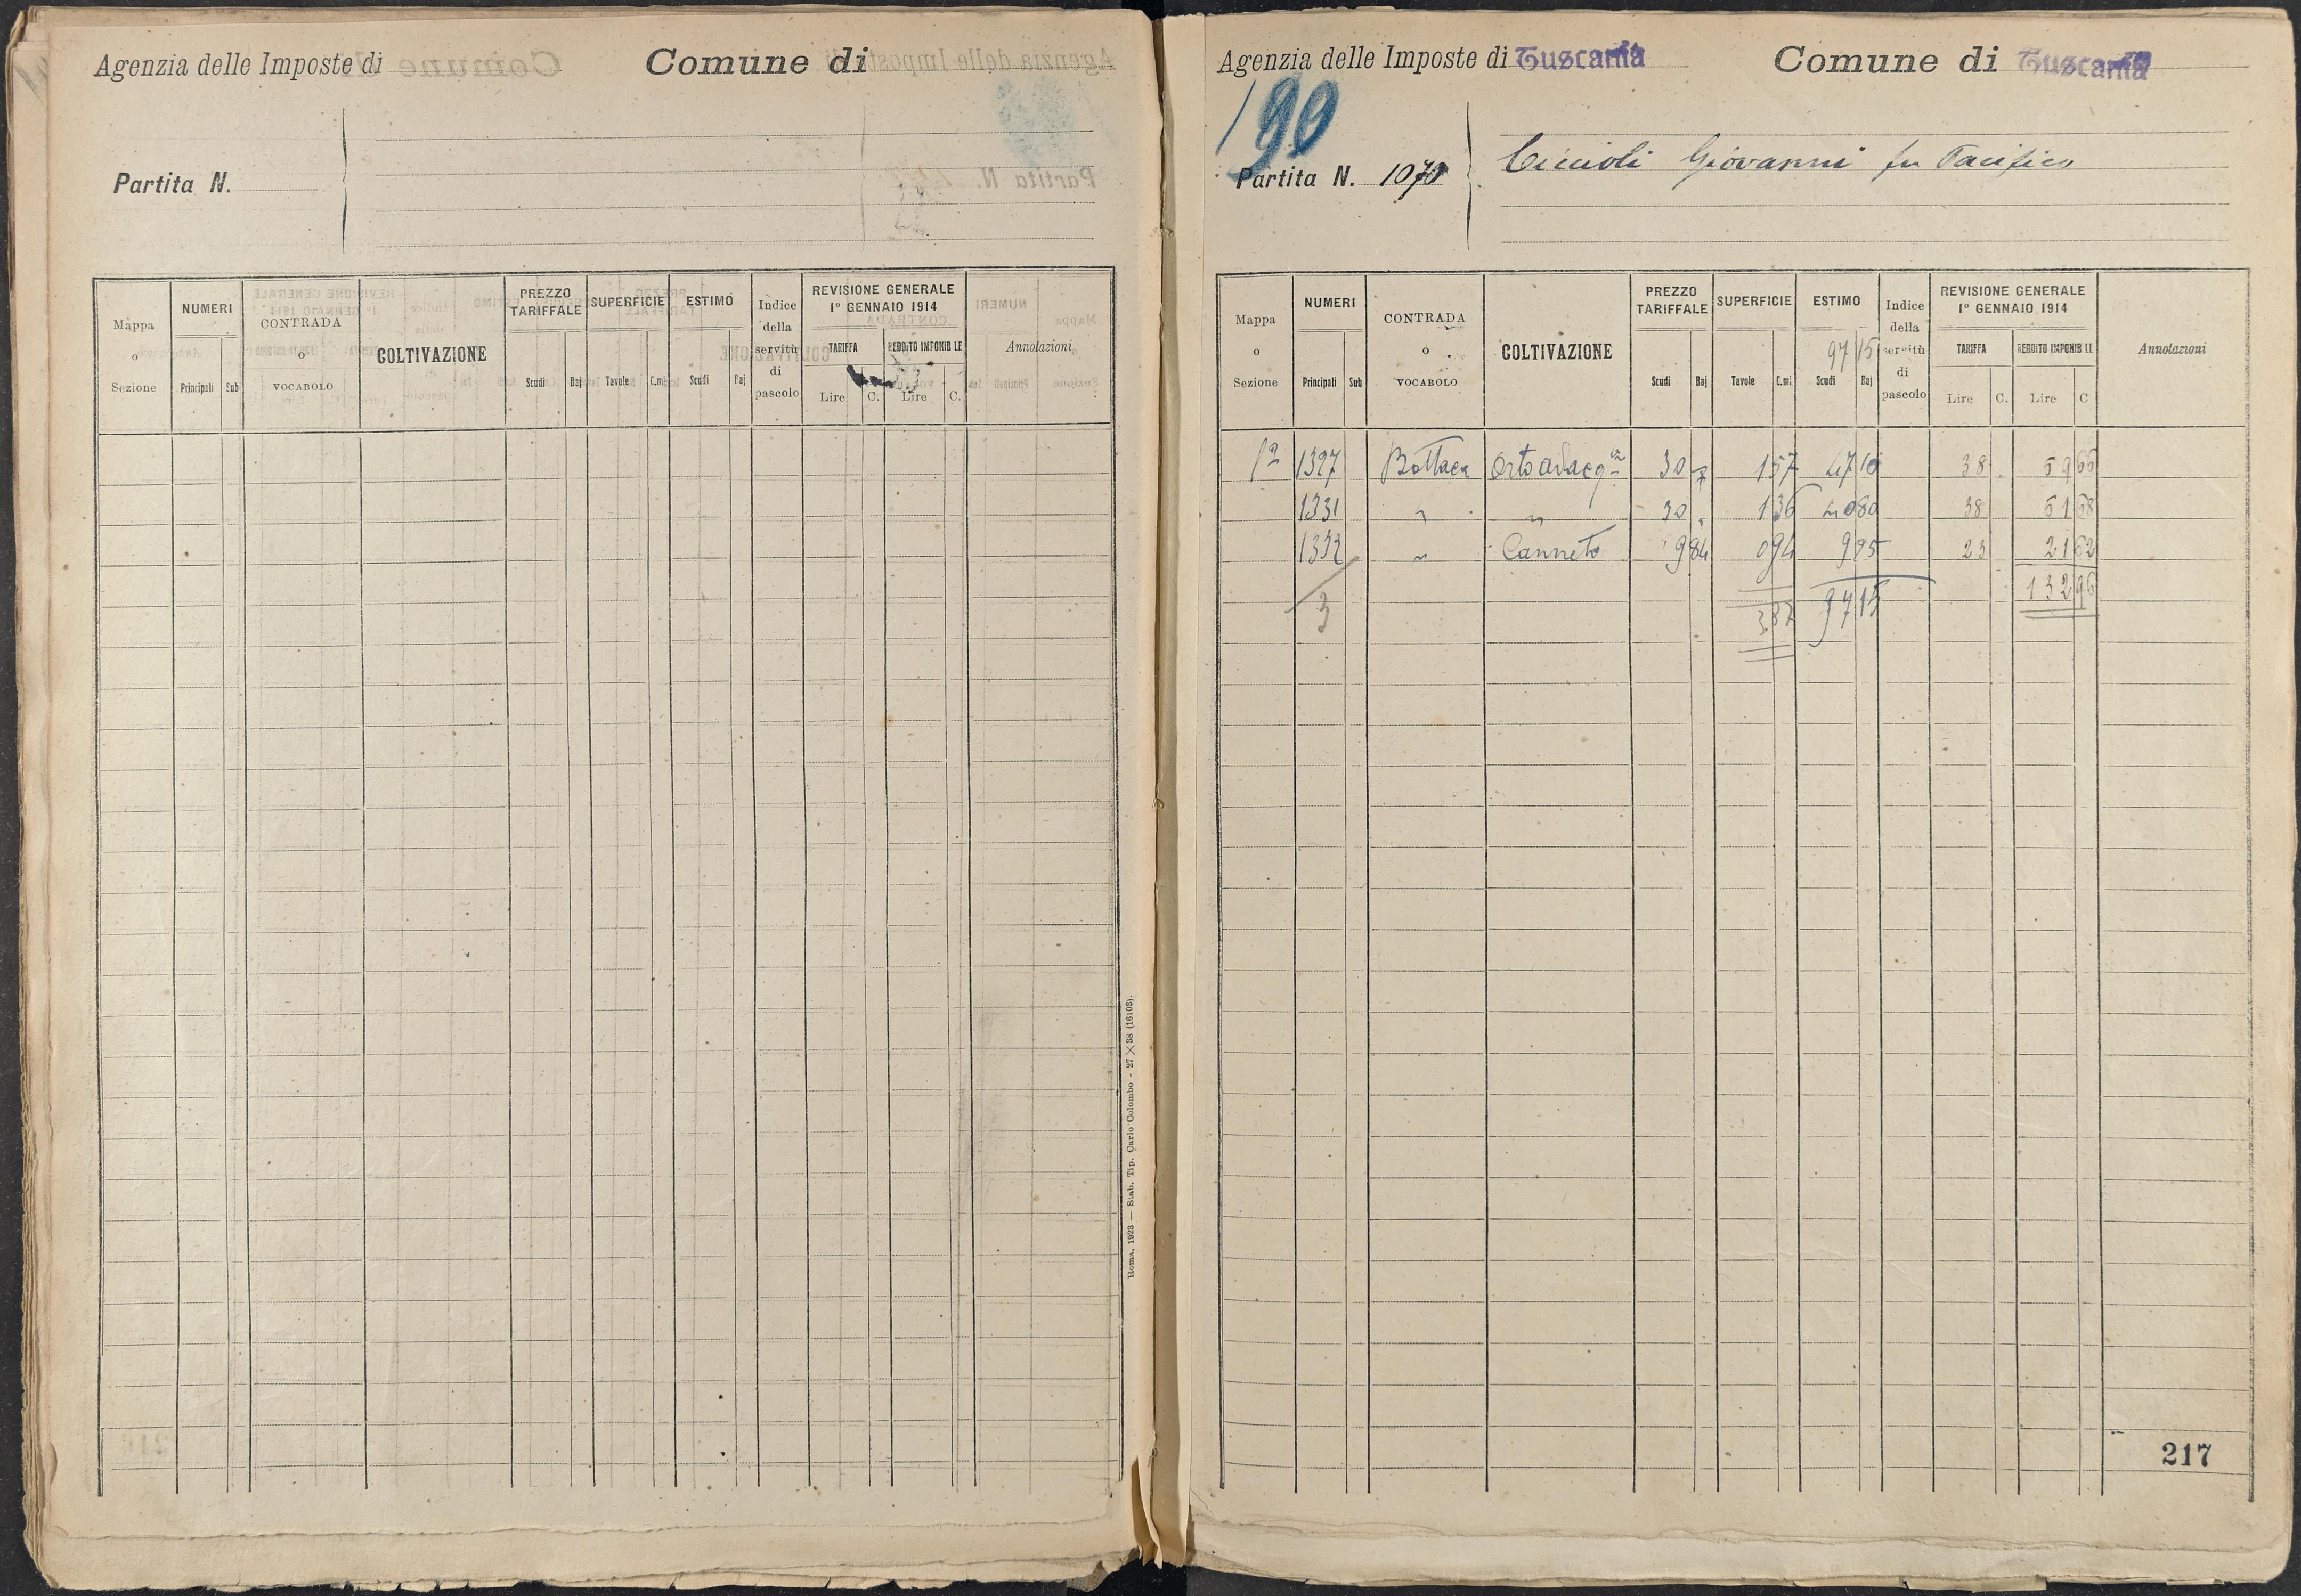 Agenzia delle Imposte di Comune di
Partita N.
Mappa o Sezione
NUMERI
Principali Sub
CONTRADA o VOCABOLO
COLTIVAZIONE
PREZZO TARIFFALE
Scudi Baj
SUPERFICIE
Tavole C.mi
ESTIMO
Scudi Baj
Indice della servitù di pascolo
REVISIONE GENERALE
1° GENNAIO 1914
TARIFFA REDDITO IMPONIBILE
Lire C. Lire C.
Annotazioni
Roma, 1923 — Stab. Tip. Carlo Colombo - 27 X 38 (16108).
Agenzia delle Imposte di Tuscania Comune di Tuscania
190
Partita N. 1070 Ciccioli Giovanni fu Pacifico
Mappa o Sezione
NUMERI
Principali Sub
CONTRADA o VOCABOLO
COLTIVAZIONE
PREZZO TARIFFALE
Scudi Baj
SUPERFICIE
Tavole C.mi
ESTIMO
97 15
Scudi Baj
Indice della servitù di pascolo
REVISIONE GENERALE
1° GENNAIO 1914
TARIFFA REDDITO IMPONIBILE
Lire C. Lire C
Annotazioni
1ª 1327 Bottaca 30 1 57 47 10 38 59 66
1331 " " 30 1 36 40 80 38 51 68
1332 " Canneto 9 84 0 94 9 25 23 21 62
3 3 87 97 15 132 96
217